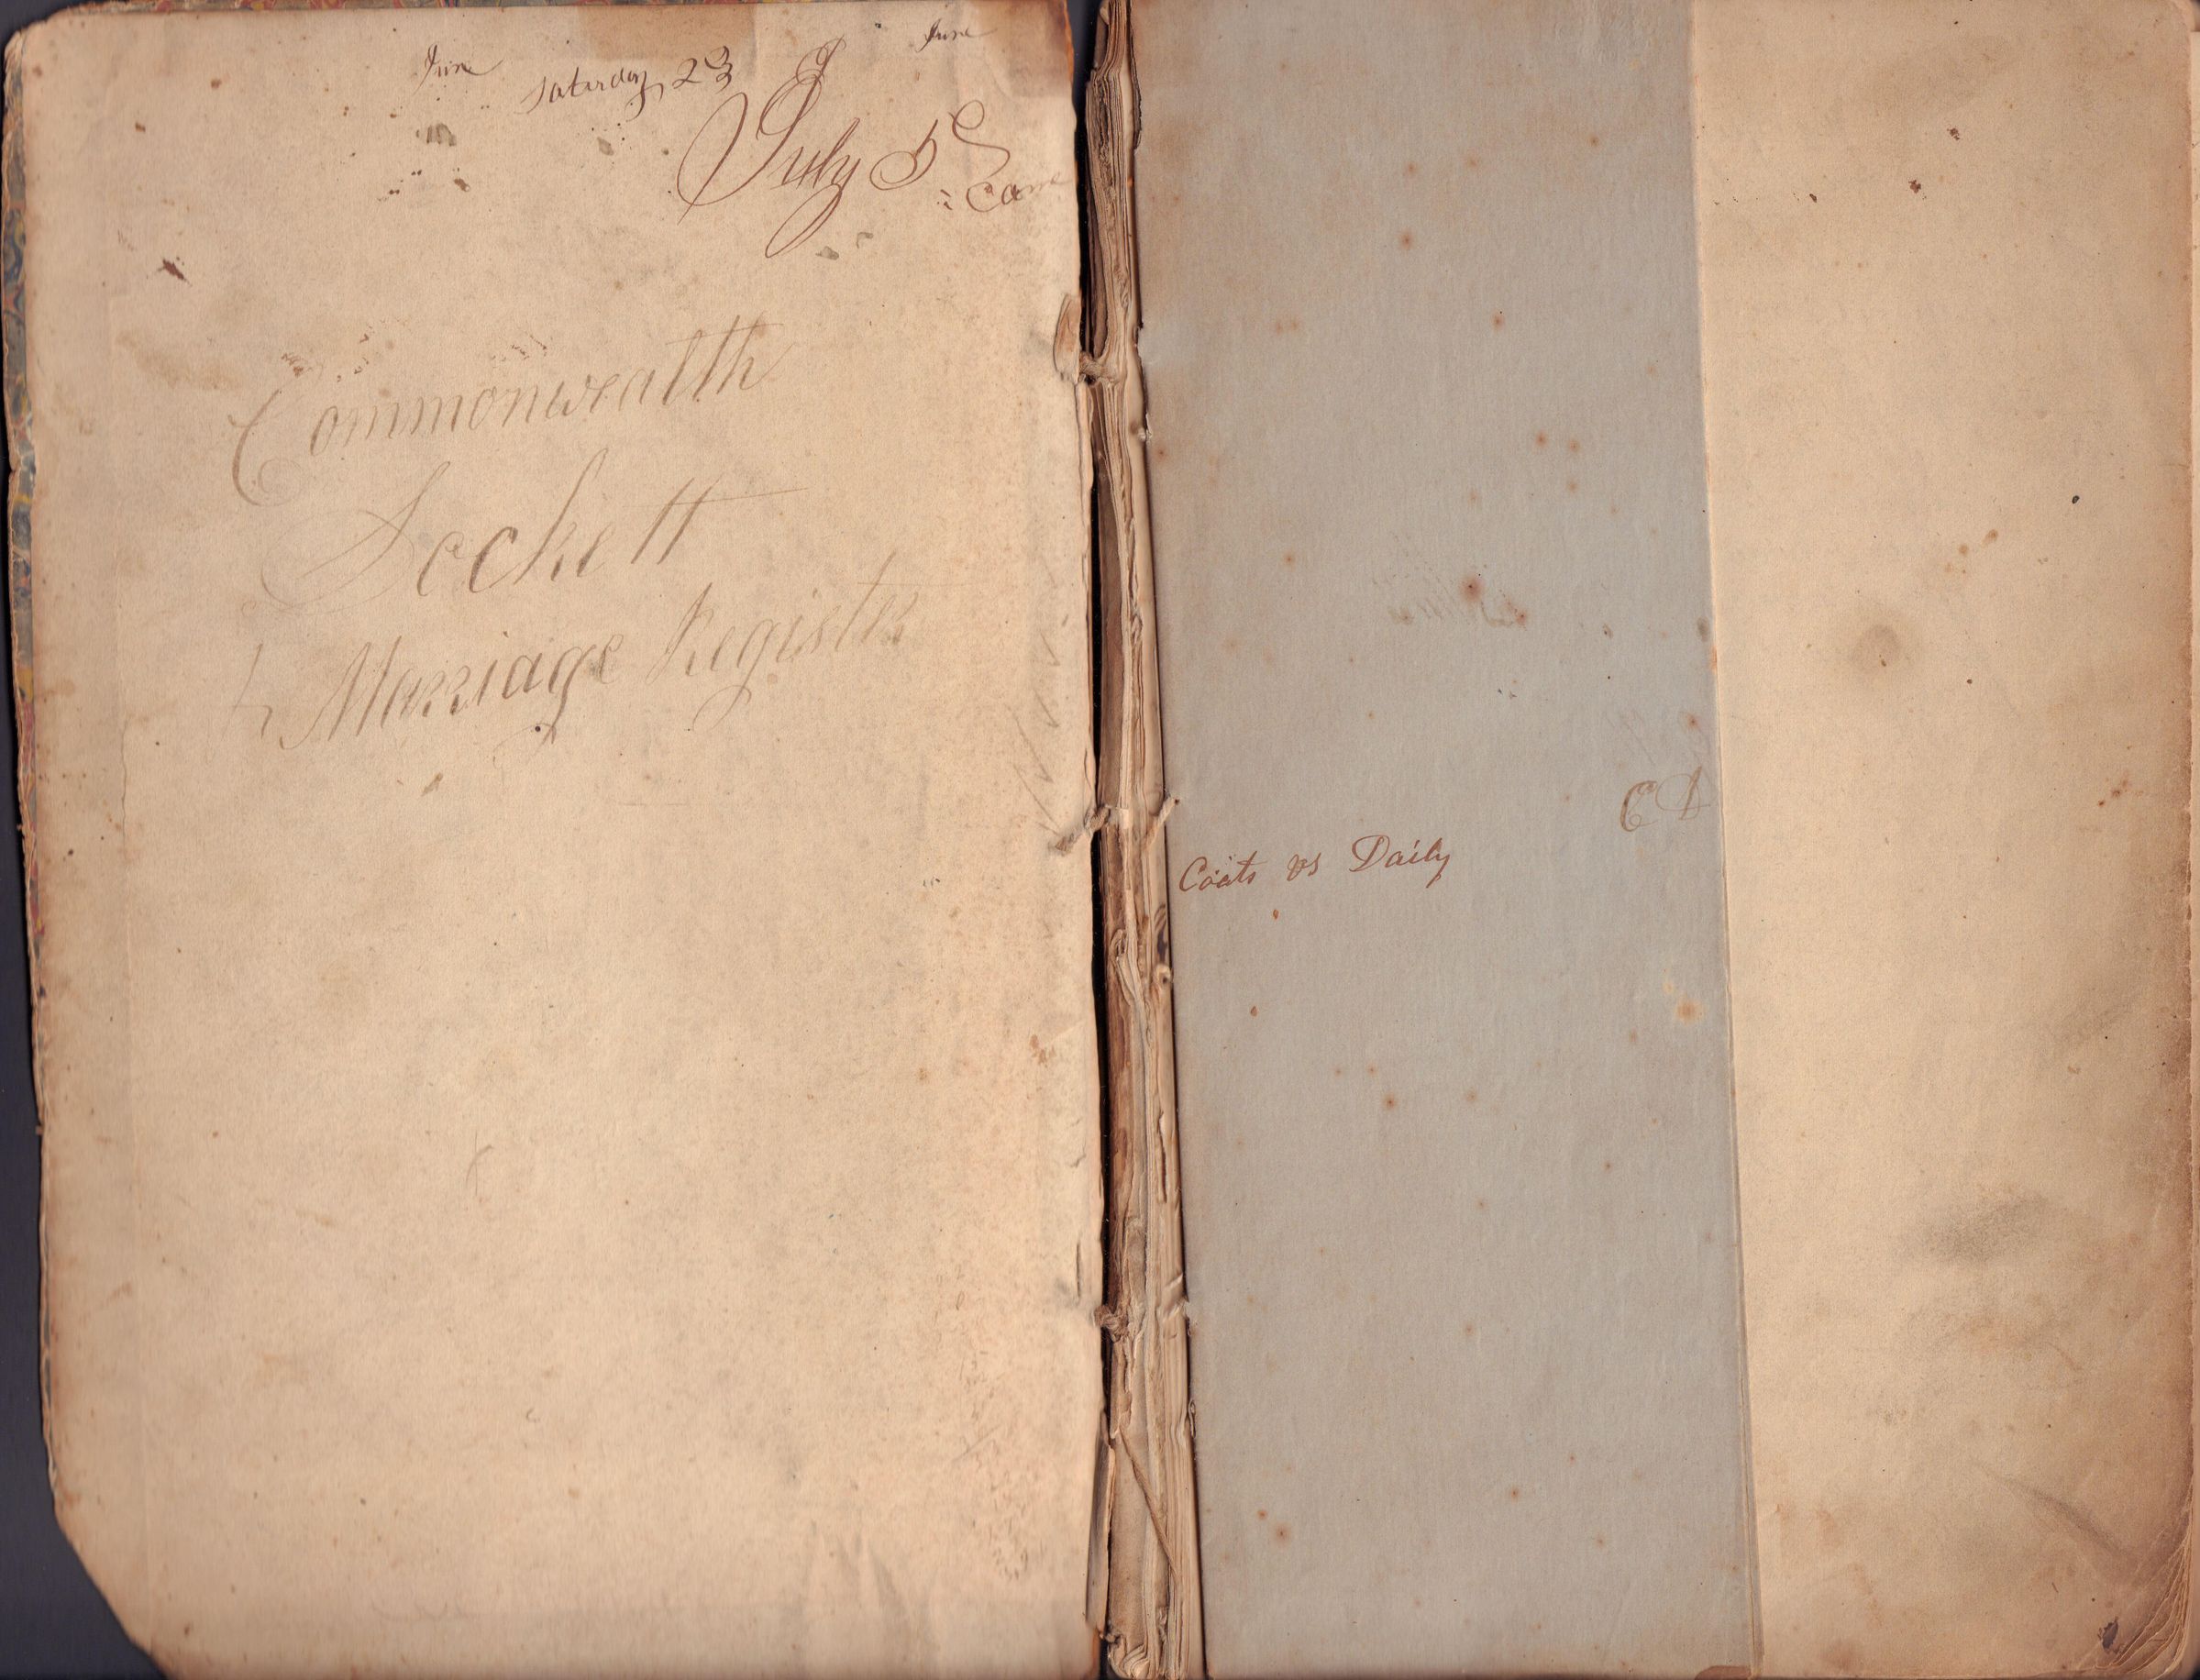 June
June
Saturday 23
July 5
Came
Commonwealth
Dockett
& Marriage Register
C D
Coats vs Daily